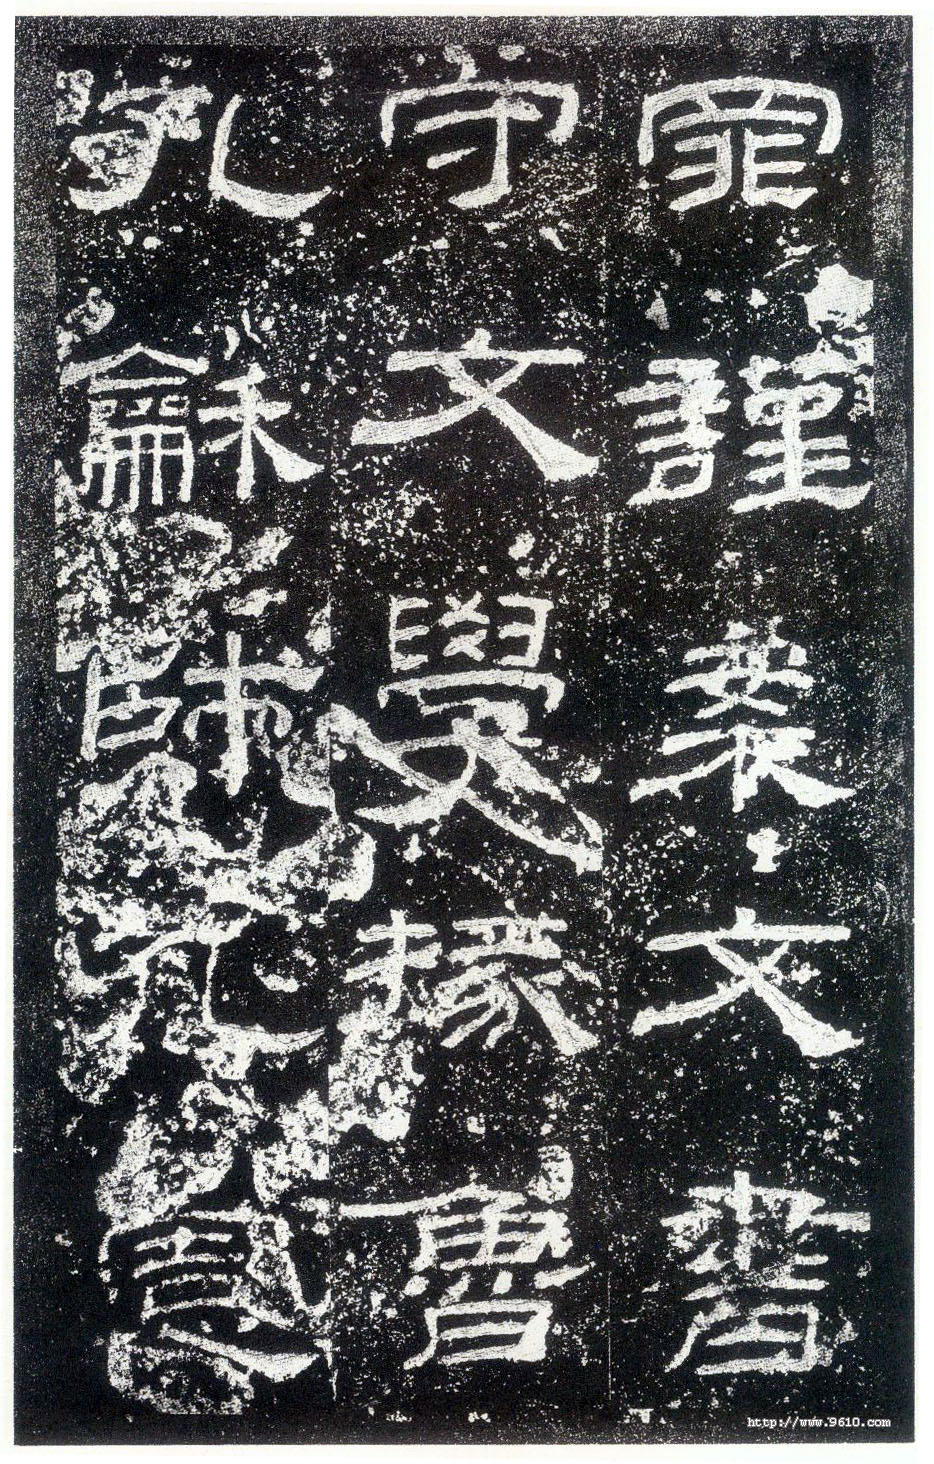 罪謹案文書
守文學掾魯
孔龢師孔憲
http://www.9610.com